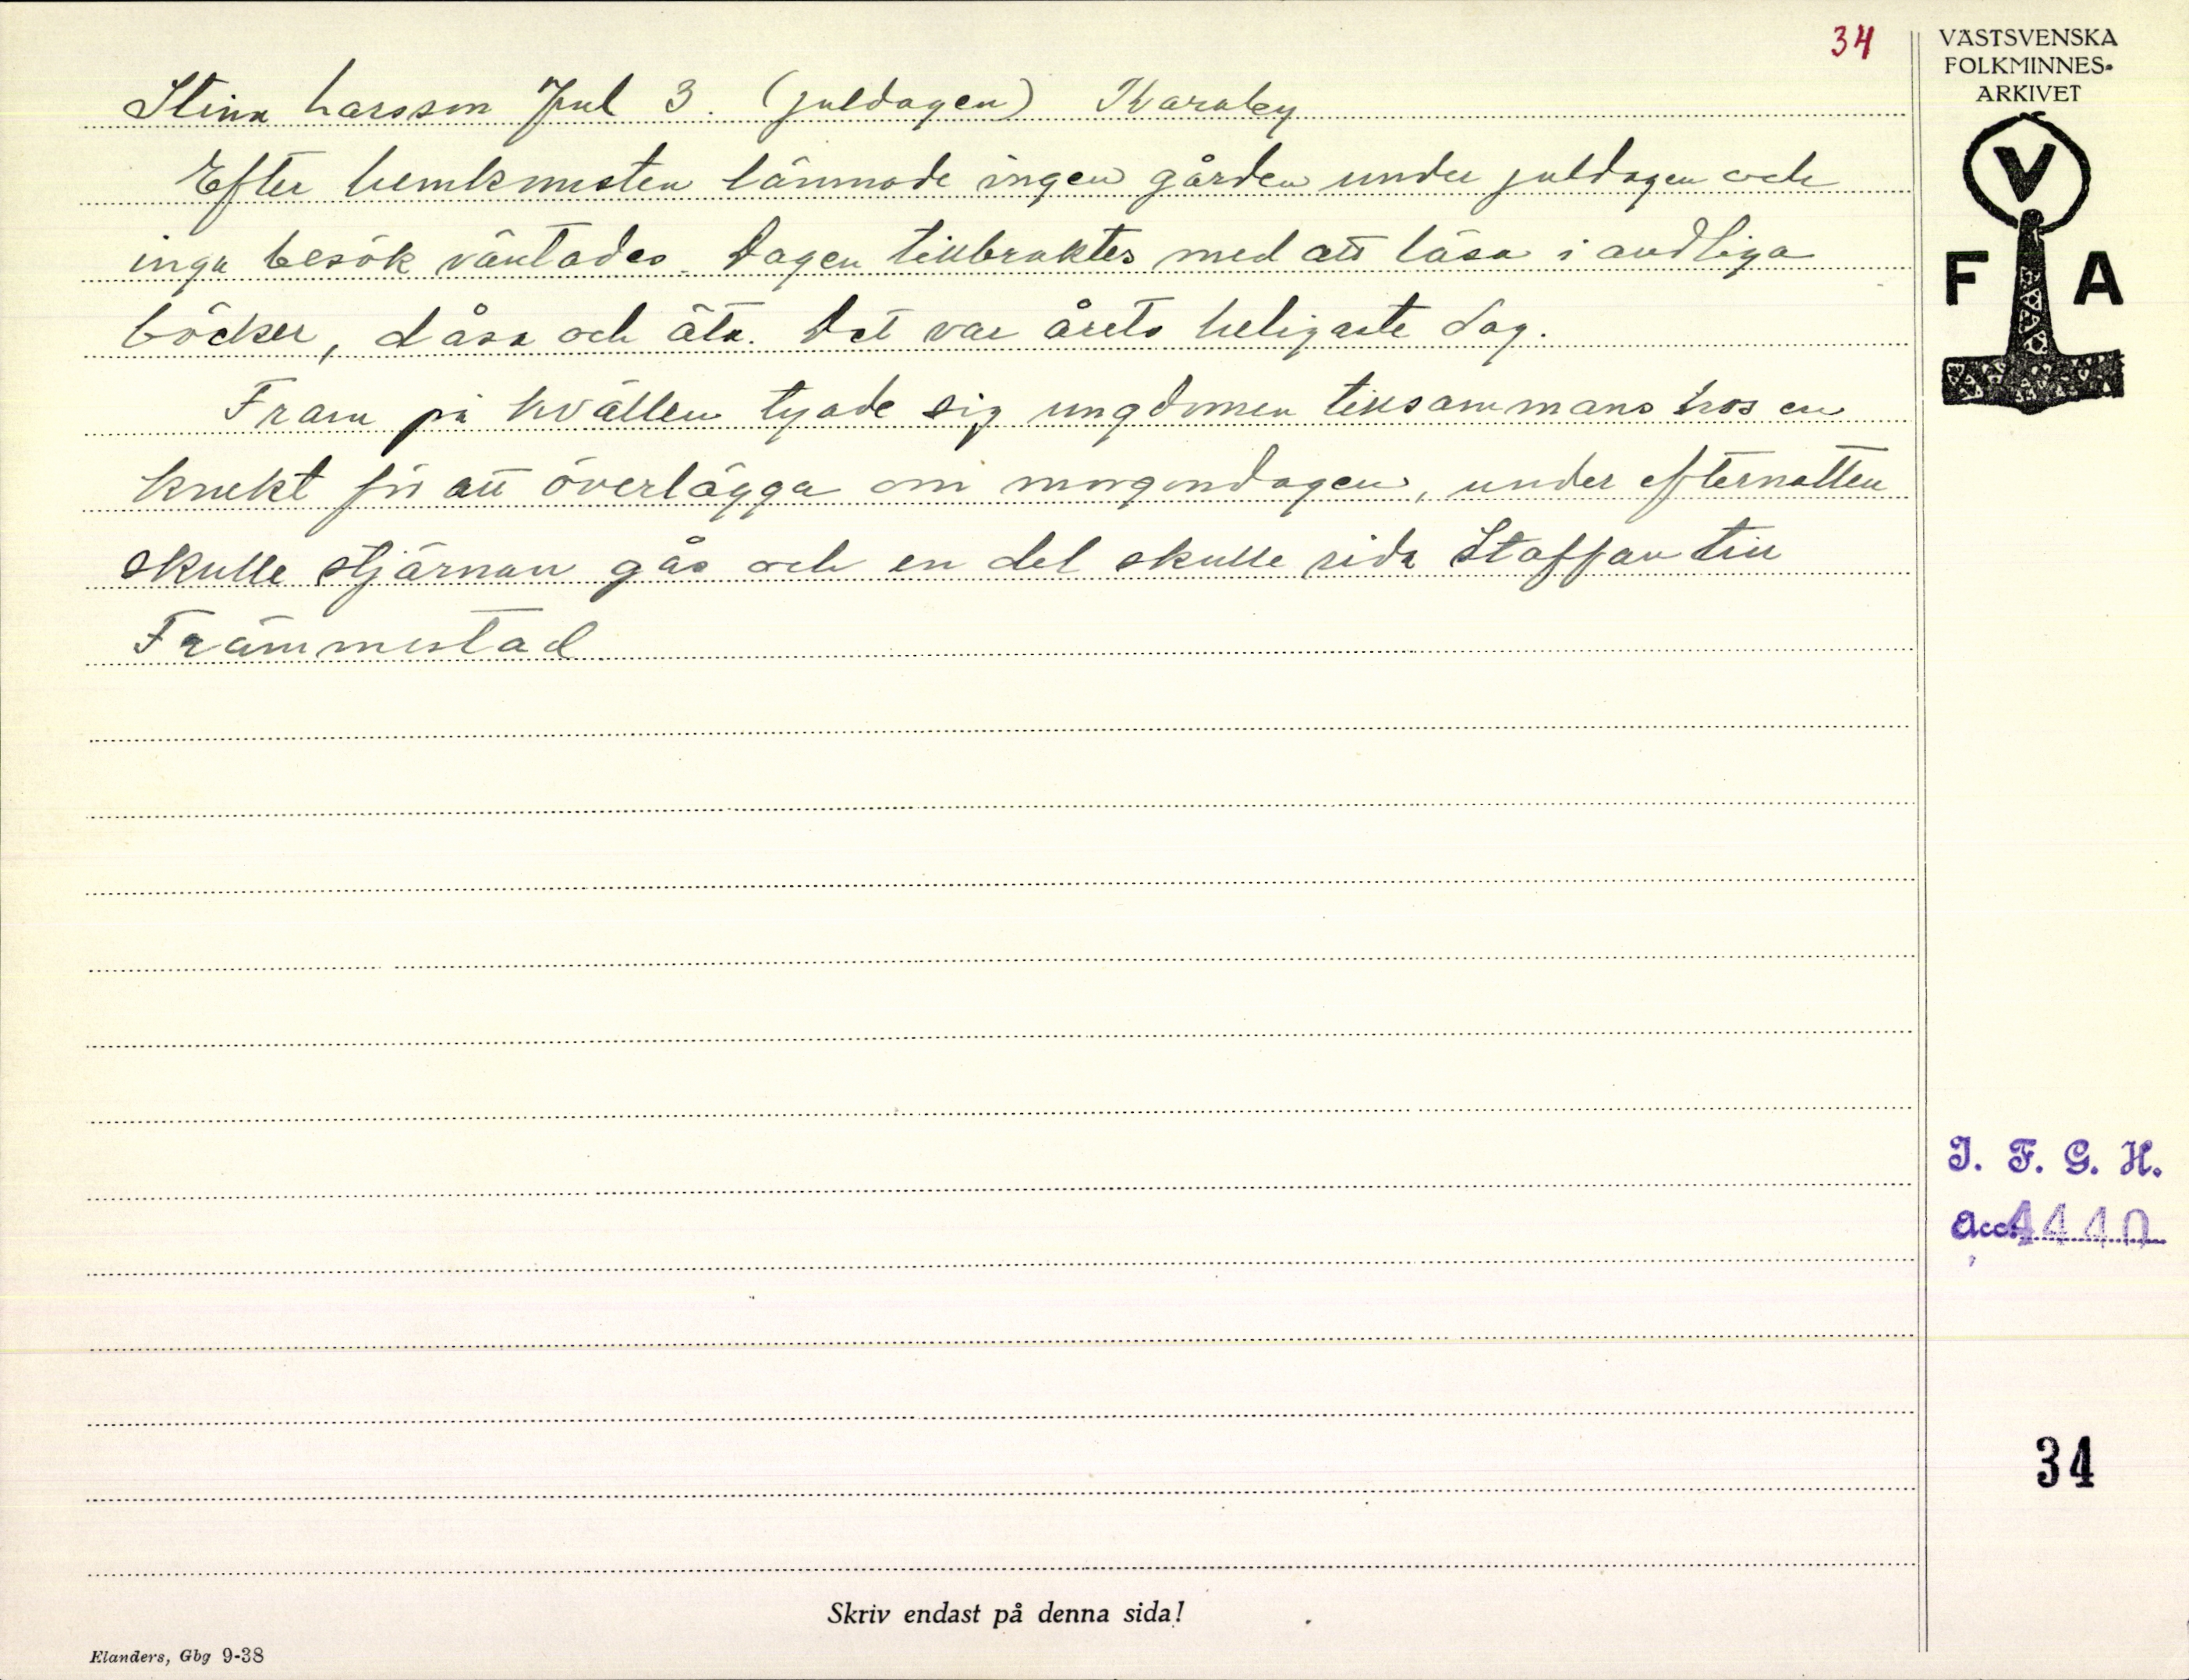 34
VÄSTSVENSKA
FOLKMINNES-
ARKIVET
V
F A
Stina Larsson Jul 3. (juldagen) Karaby
Efter hemkomsten lämnade ingen gården under juldagen och
inga besök väntades. Dagen tillbraktes med att läsa i andliga
böcker, dåsa och äta. Det var årets heligaste dag.
Fram på kvällen tyade sig ungdomen tillsammans hos en
knekt för att överlägga om morgondagen, under efternatten
skulle stjärnan gås och en del skulle rida Staffan till
Främmestad
I. F. G. H.
Acc. 4440
34
Skriv endast på denna sida!
Elanders, Gbg 9-38